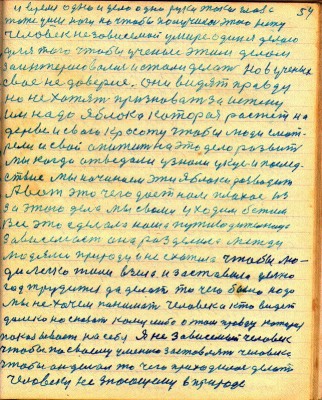 54
и время одно и дело одно руки только слова
тоже ушли ноги но чтобы получилось этого нету
человек независимый ум и родился делаю
для того чтобы ученые этим делом
заинтересовались и стали делать Но в ученых
свое не доверие. Они видят правду
но не хотят призновать за истену
им надо яблоко которая растет на
дереве и свою красоту чтобы люди смот-
рели и свой аппитит на это дело развит
мы когда отведали узнали укус и послед-
ствие мы начинаем эти яблоки разводит
А вот это чего дает нам плохое из
за этого дела мы своим уходим
Все это сделала наша
зависимост она разделила между
людями природу она не хотела чтобы лю-
ди легко жили взяла и заставила целый
год трудится да делат то чего было надо
мы не хочем понимат человека кто видет
далеко но сказат кому либо о том правду которая
показывает на себя Я не зависемый человек
чтобы по своему умению заставлят человека
чтобы он делал то чего приходилос делат
человеку не знающему в природе